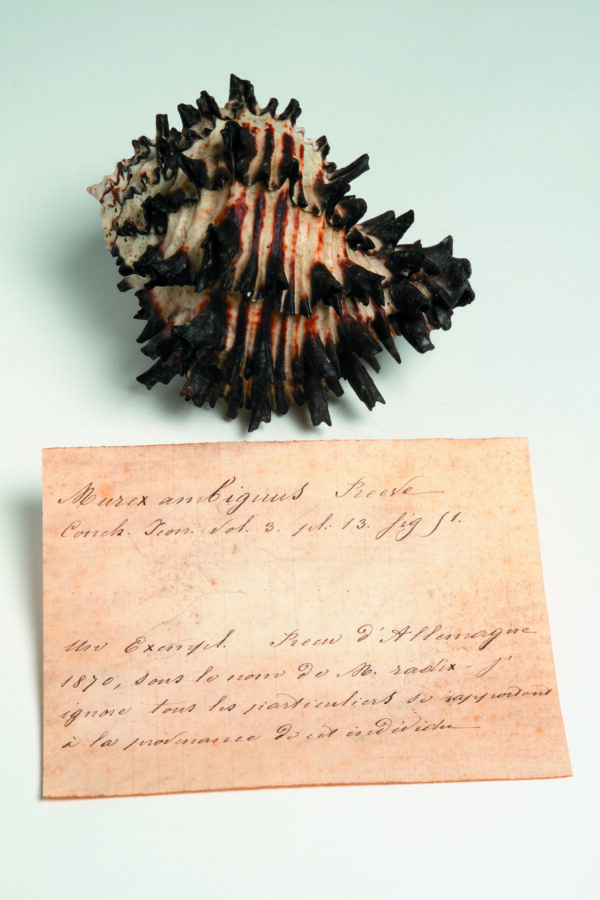 Murex ambiguus Reeve
Conch. Icon. Vol. 3. pl. 13. fig 51.
Un Exempl. Recu d'Allemagne
1870, sous le nom de M. radix - j'
ignore tous les particuliers se rapportent
à la provenance de cet individu